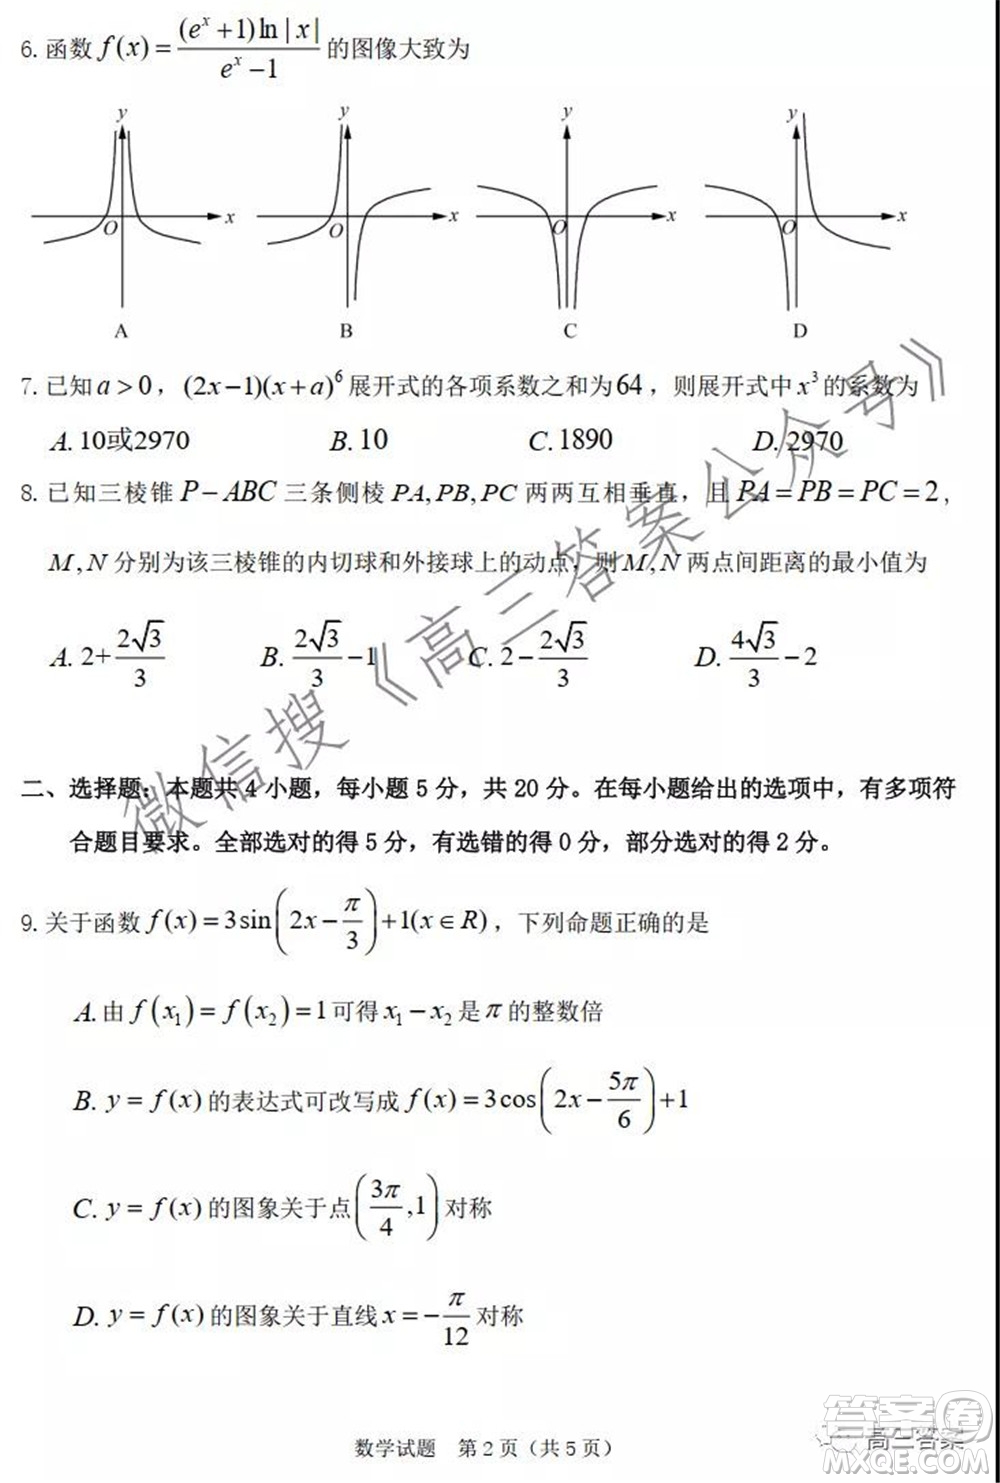 6. 函数 f(x) = (e^x+1)ln|x| / (e^x−1) 的图像大致为
y y y y
O x O x O x O x
A B C D
7. 已知 a>0，(2x−1)(x+a)^6 展开式的各项系数之和为 64，则展开式中 x^3 的系数为
A. 10或2970 B. 10 C. 1890 D. 2970
8. 已知三棱锥 P−ABC 三条侧棱 PA,PB,PC 两两互相垂直，且 PA=PB=PC=2，
M,N 分别为该三棱锥的内切球和外接球上的动点，则 M,N 两点间距离的最小值为
A. 2+2√3/3 B. 2√3/3−1 C. 2−2√3/3 D. 4√3/3−2
二、选择题：本题共 4 小题，每小题 5 分，共 20 分。在每小题给出的选项中，有多项符
合题目要求。全部选对的得 5 分，有选错的得 0 分，部分选对的得 2 分。
9. 关于函数 f(x)=3sin(2x−π/3)+1(x∈R)，下列命题正确的是
A. 由 f(x₁)=f(x₂)=1 可得 x₁−x₂ 是 π 的整数倍
B. y=f(x) 的表达式可改写成 f(x)=3cos(2x−5π/6)+1
C. y=f(x) 的图象关于点(3π/4,1)对称
D. y=f(x) 的图象关于直线 x=−π/12 对称
数学试题 第 2 页（共 5 页）
微信搜《高三答案公众号》
答案圈
高三答案